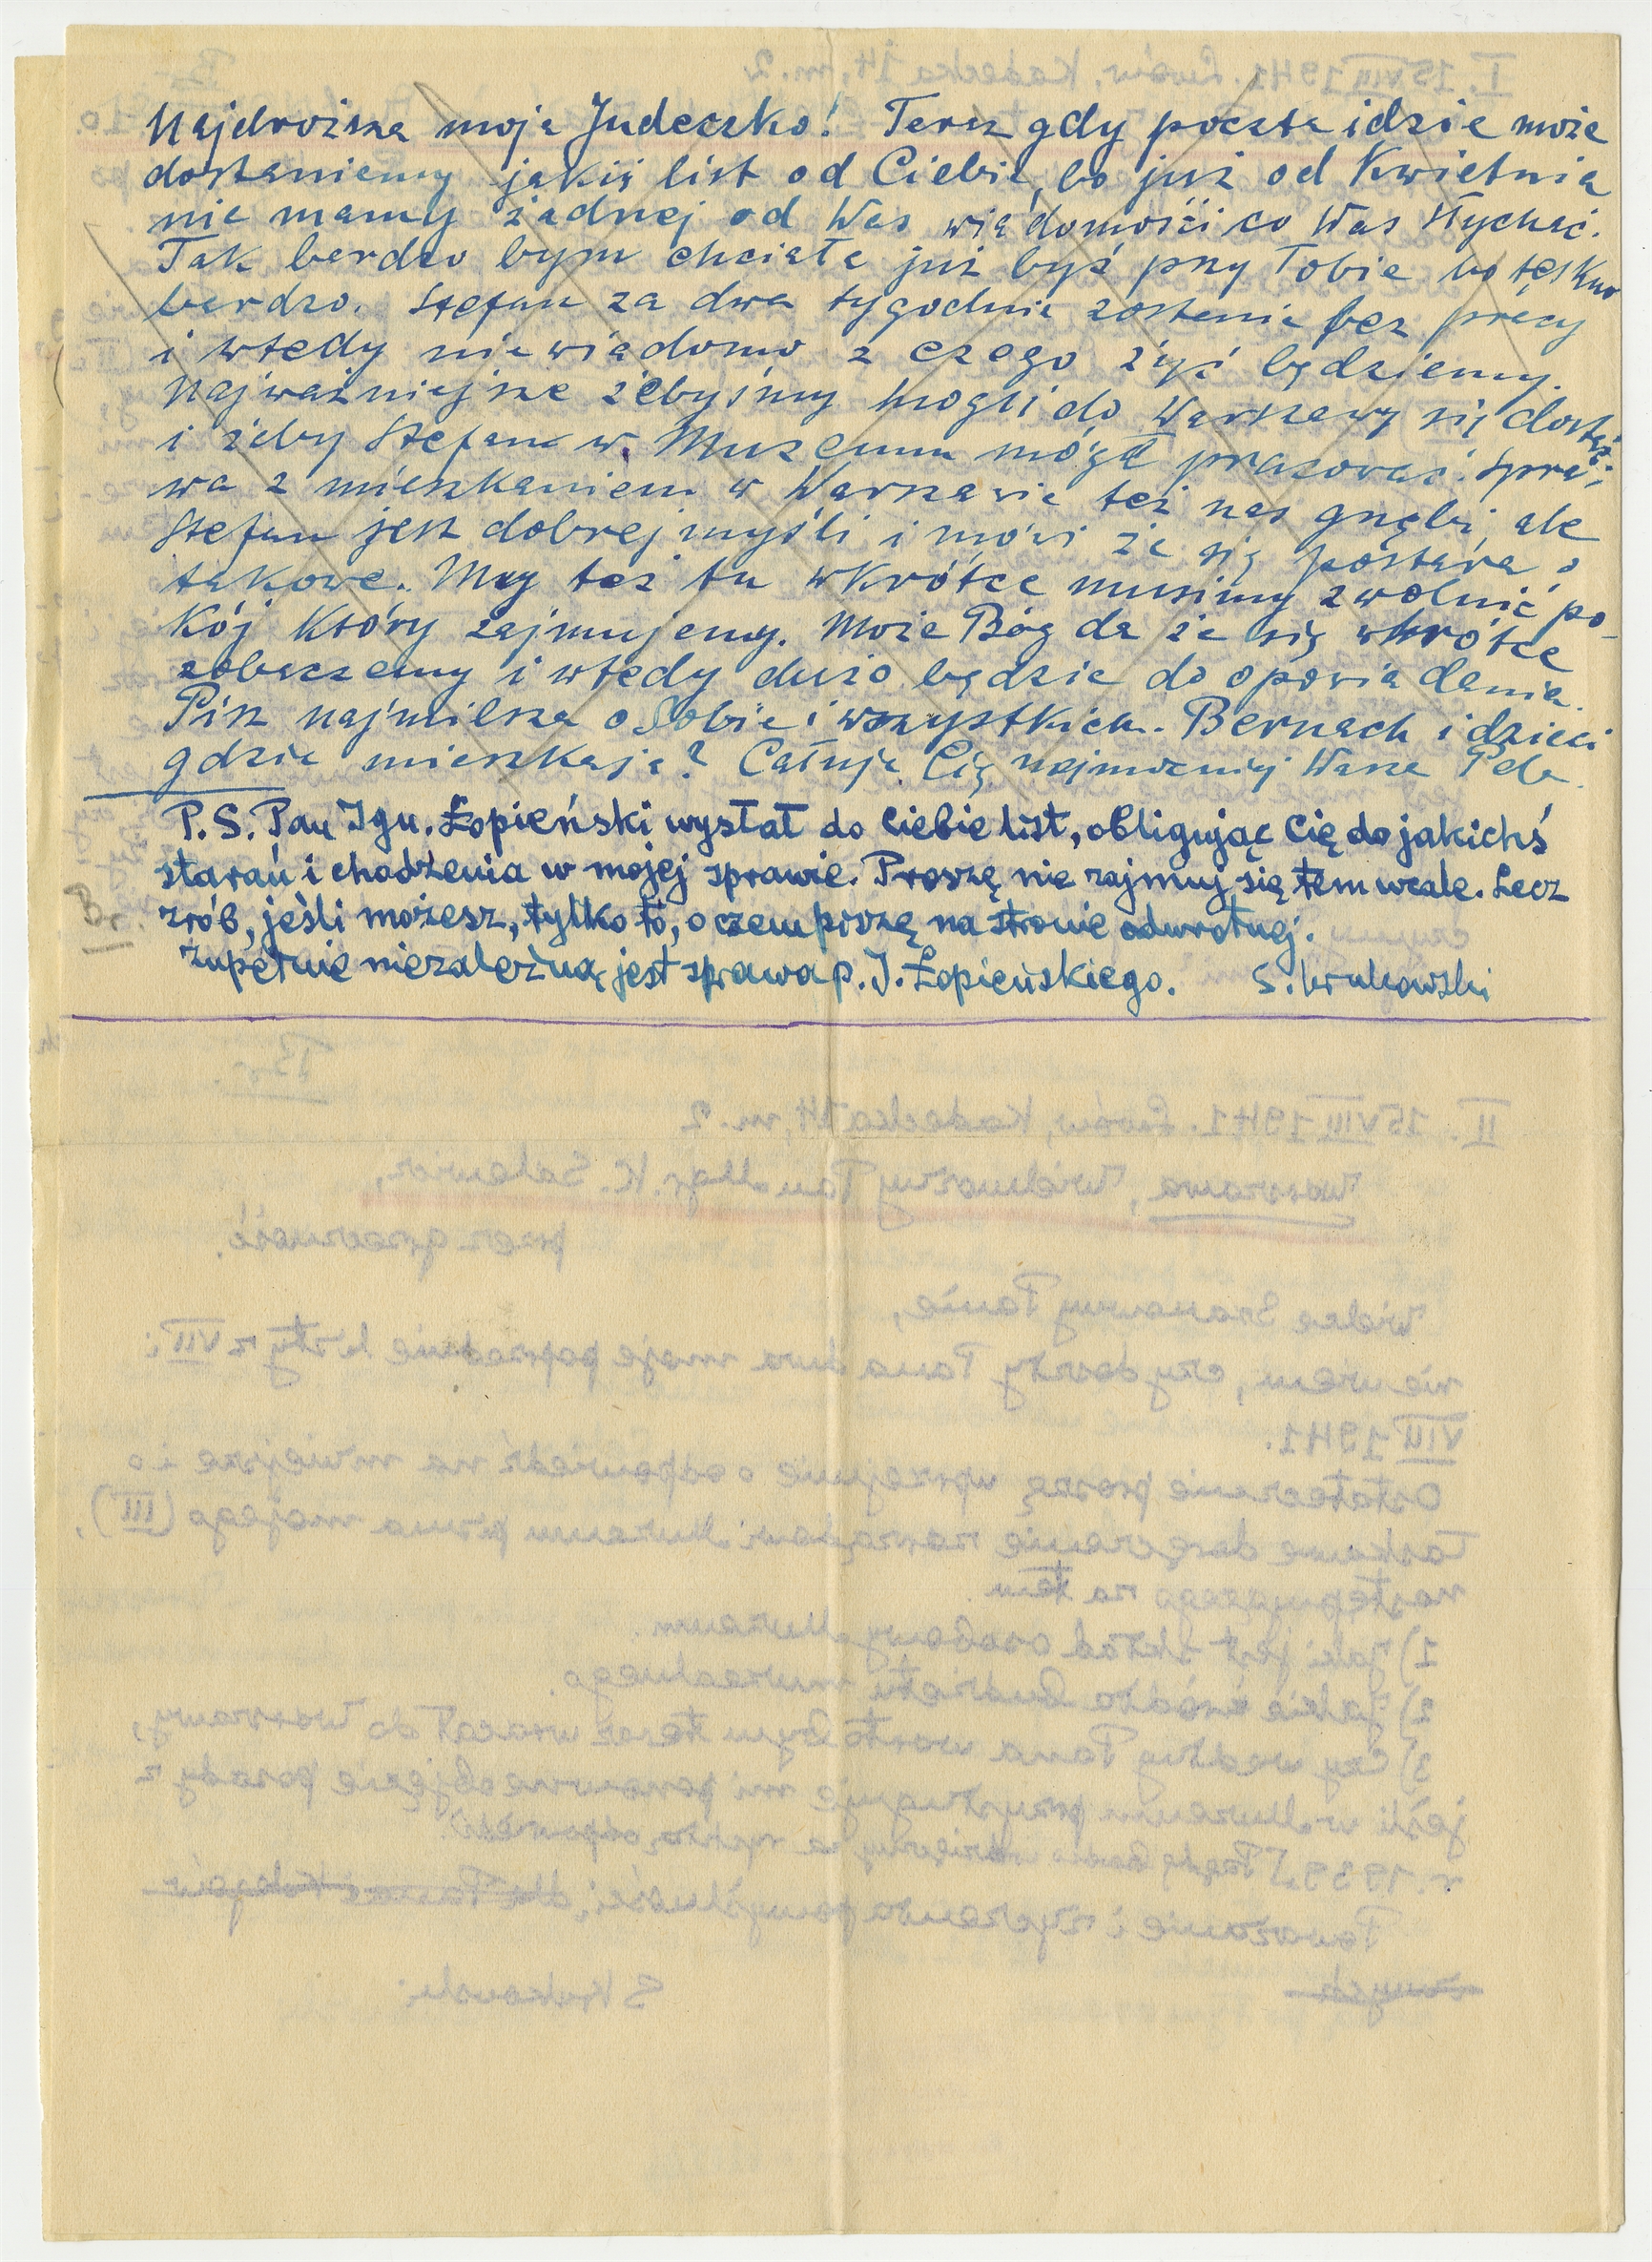 Najdroższa moja Judeczko! Teraz gdy poczta idzie może
dostaniemy jakiś list od Ciebie, bo już od Kwietnia
nie mamy żadnej od Was wiadomości co Was słychać.
Tak bardzo bym chciała już być przy Tobie bo tęskno
bardzo. Stefan za dwa tygodnie zostanie bez pracy
i wtedy niewiadomo z czego żyć będziemy.
Najważniejsze żebyśmy mogli do Warszawy się dostać
i żeby Stefan w Muzeum mógł pracować. Spra-
wa z mieszkaniem w Warszawie też nas gnębi, ale
Stefan jest dobrej myśli i mówi że się postara o
takowe. My też tu wkrótce musimy zwolnić po-
kój który zajmujemy. Może Bóg da że się wkrótce
zobaczemy i wtedy dużo będzie do opowiadania.
Pisz najmilsza o Sobie i wszystkich. Bernach i dzieci
gdzie mieszkają? Całuję Cię najmocniej Wasza Pela
P.S. Pan Ign. Łopieński wysłał do Ciebie list, obligując Cię do jakichś
starań i chodzenia w mojej sprawie. Proszę nie zajmuj się tem wcale. Lecz
zrób, jeśli możesz, tylko to, o czem piszę na stronie odwrotnej.
Zupełnie niezależną jest sprawa p. I. Łopieńskiego. S. Krukowski